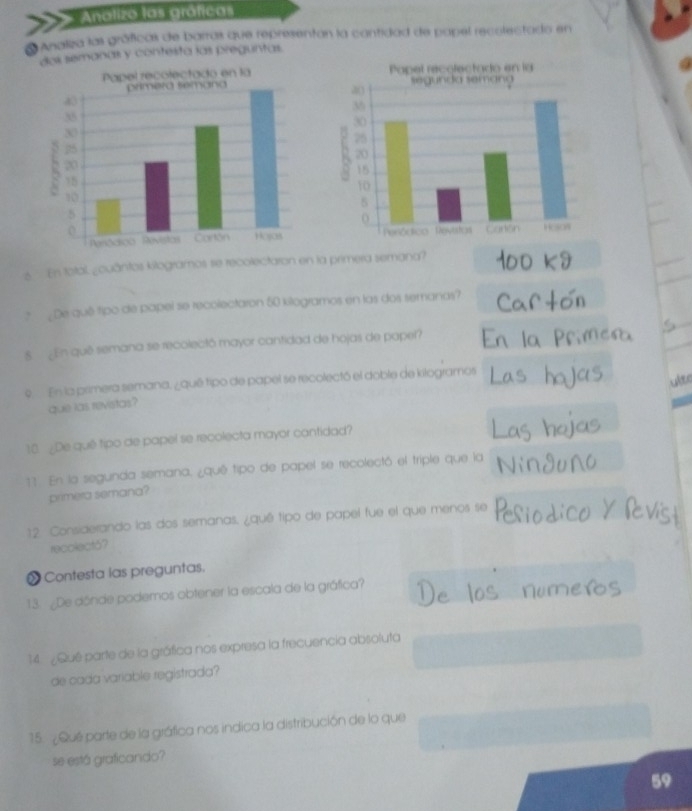 Analizo las gráficas
Analiza las gráficas de barras que representan la cantidad de papel recolectado en
dos semanas y contesta las preguntas.
Papel recolectado en la
primera semana
40
35
30
25
20
15
10
5
0
Kilogramos
Periódico Revistas Cartón Hojas
Papel recolectado en la
segunda semana
40
35
30
25
20
15
10
5
0
Kilogramos
Periódico Revistas Cartón Hojas
6. En total, ¿cuántos kilogramos se recolectaron en la primera semana? 100 kg
7. ¿De qué tipo de papel se recolectaron 50 kilogramos en las dos semanas? Cartón
8. ¿En qué semana se recolectó mayor cantidad de hojas de papel? En la Primera
9. En la primera semana, ¿qué tipo de papel se recolectó el doble de kilogramos Las hojas
que las revistas?
10. ¿De qué tipo de papel se recolecta mayor cantidad? Las hojas
11. En la segunda semana, ¿qué tipo de papel se recolectó el triple que la Ninguno
primera semana?
12. Considerando las dos semanas, ¿qué tipo de papel fue el que menos se Periodico y Revist
recolectó?
Contesta las preguntas.
13. ¿De dónde podemos obtener la escala de la gráfica? De los numeros
14. ¿Qué parte de la gráfica nos expresa la frecuencia absoluta
de cada variable registrada?
15. ¿Qué parte de la gráfica nos indica la distribución de lo que
se está graficando?
59